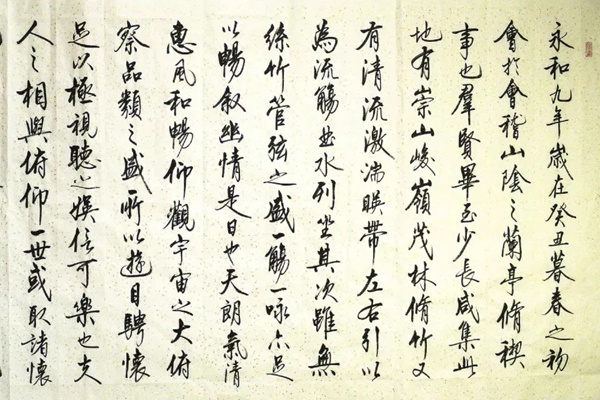 永和九年歲在癸丑暮春之初
會於會稽山陰之蘭亭脩禊
事也羣賢畢至少長咸集此
地有崇山峻嶺茂林脩竹又
有清流激湍暎帶左右引以
為流觴曲水列坐其次雖無
絲竹管弦之盛一觴一詠亦足
以暢敘幽情是日也天朗氣清
惠風和暢仰觀宇宙之大俯
察品類之盛所以遊目騁懷
足以極視聽之娛信可樂也夫
人之相與俯仰一世或取諸懷